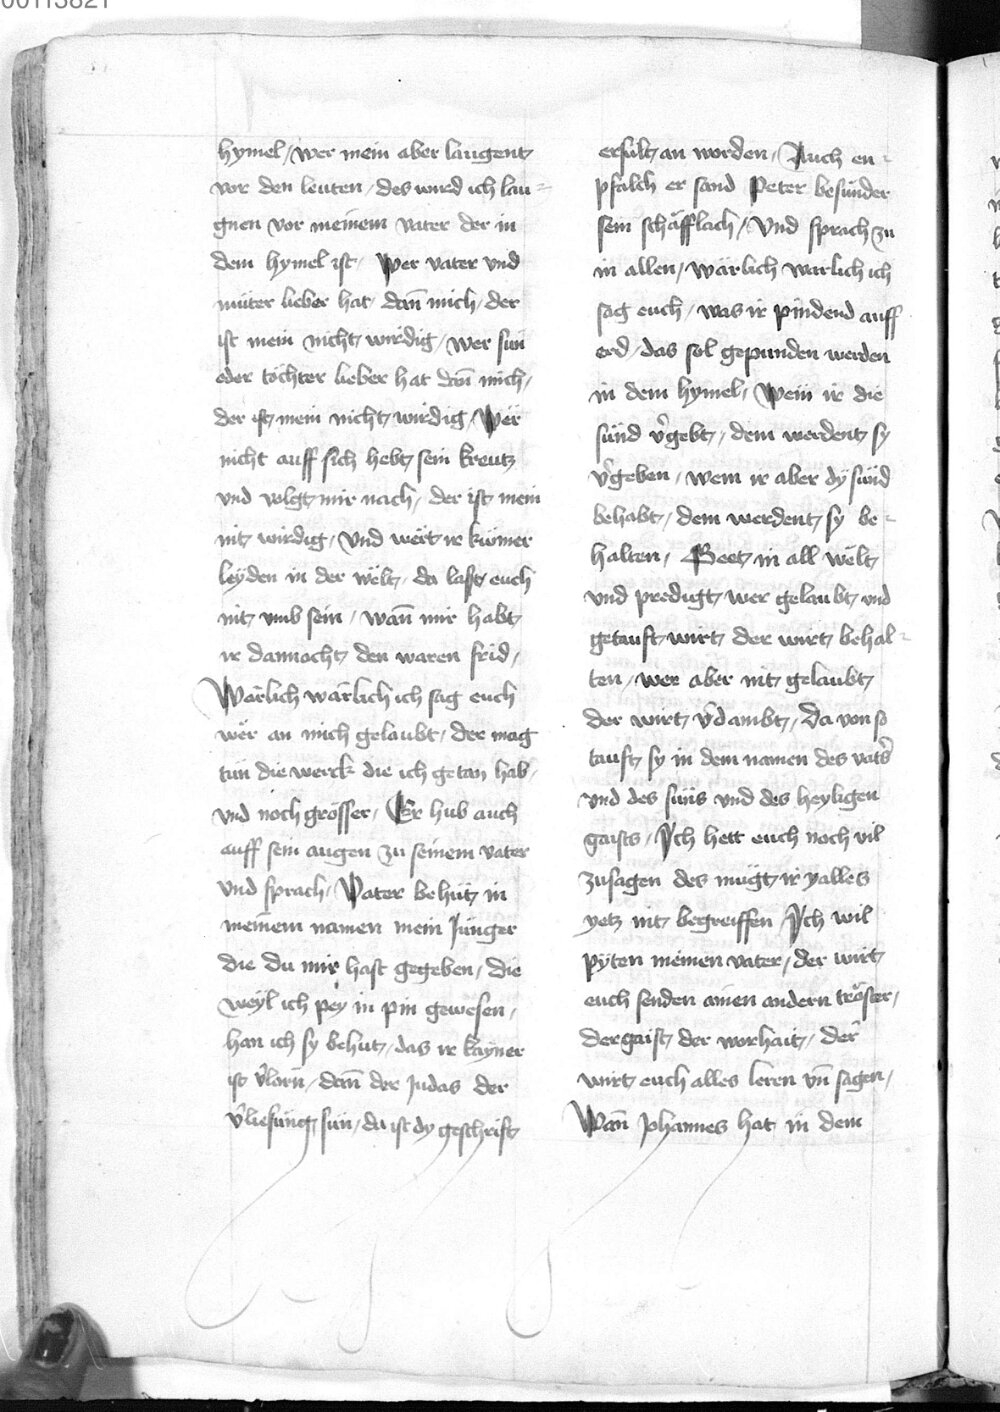 00113821
hymel / wer mein aber laugent
vor den leuten / des wird ich lau=
gnen vor meinem vater der in
dem hymel ist / Wer vater vnd
müter lieber hat / dañ mich / der
ist mein nicht wirdig / wer sün
oder töchter lieber hat dañ mich /
der ist mein nicht wirdig / Wer
nicht auff sich hebt sein kreutz
vnd volgt mir nach / der ist mein
nit wirdig / Vnd wert ir kumer
leyden in der welt / da last euch
nit vmb sein / wañ mir habt
ir dannocht den waren frid /
Wärlich wärlich ich sag euch
wer an mich gelaubt / der mag
tün die werck die ich getan hab /
vnd noch grösser / Er hub auch
auff sein augen zu seinem vater
vnd sprach / Vater behüt in
meinem namen mein Jünger
die du mir hast gegeben / die
weyl ich pey in pin gewesen /
han ich sy behut / das ir kayner
ist v̄lorn / dañ der Judas der
v̄liesung sun / da ist dy geschrift
erfült an worden / Auch en=
pfalch er sand Peter besunder
sein schäfflach / Vnd sprach zu
in allen / wärlich warlich ich
sag euch / was ir pindend auff
erd / das sol gepunden werden
in dem hymel / Wem ir die
sünd v̄gebt / dem werdent sy
v̄geben / wem ir aber dy sünd
behabt / dem werdent sy be=
halten / Geet in all welt
vnd predigt wer gelaubt vnd
getauft wirt der wirt behal=
ten / wer aber nit gelaubt
der wirt v̄dambt / Da von so
tauft sy in dem namen des vaters
vnd des suns vnd des heyligen
gaists / Ich hett euch noch vil
zusagen des mügt ir yalles
yetz nit begreiffen Ich wil
pyten meinen vater / der wirt
euch senden ainen andern tröster /
der gaist der worhait / der
wirt euch alles leren vñ sagen /
Wañ Johannes hat in dem